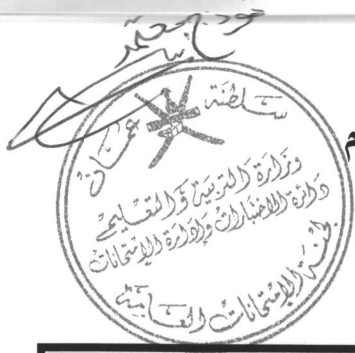 نموذج معتمد
سلطنة عمان
وزارة التربية والتعليم
دائرة الاختبارات وإدارة الامتحانات
لجنة الامتحانات العامة
م